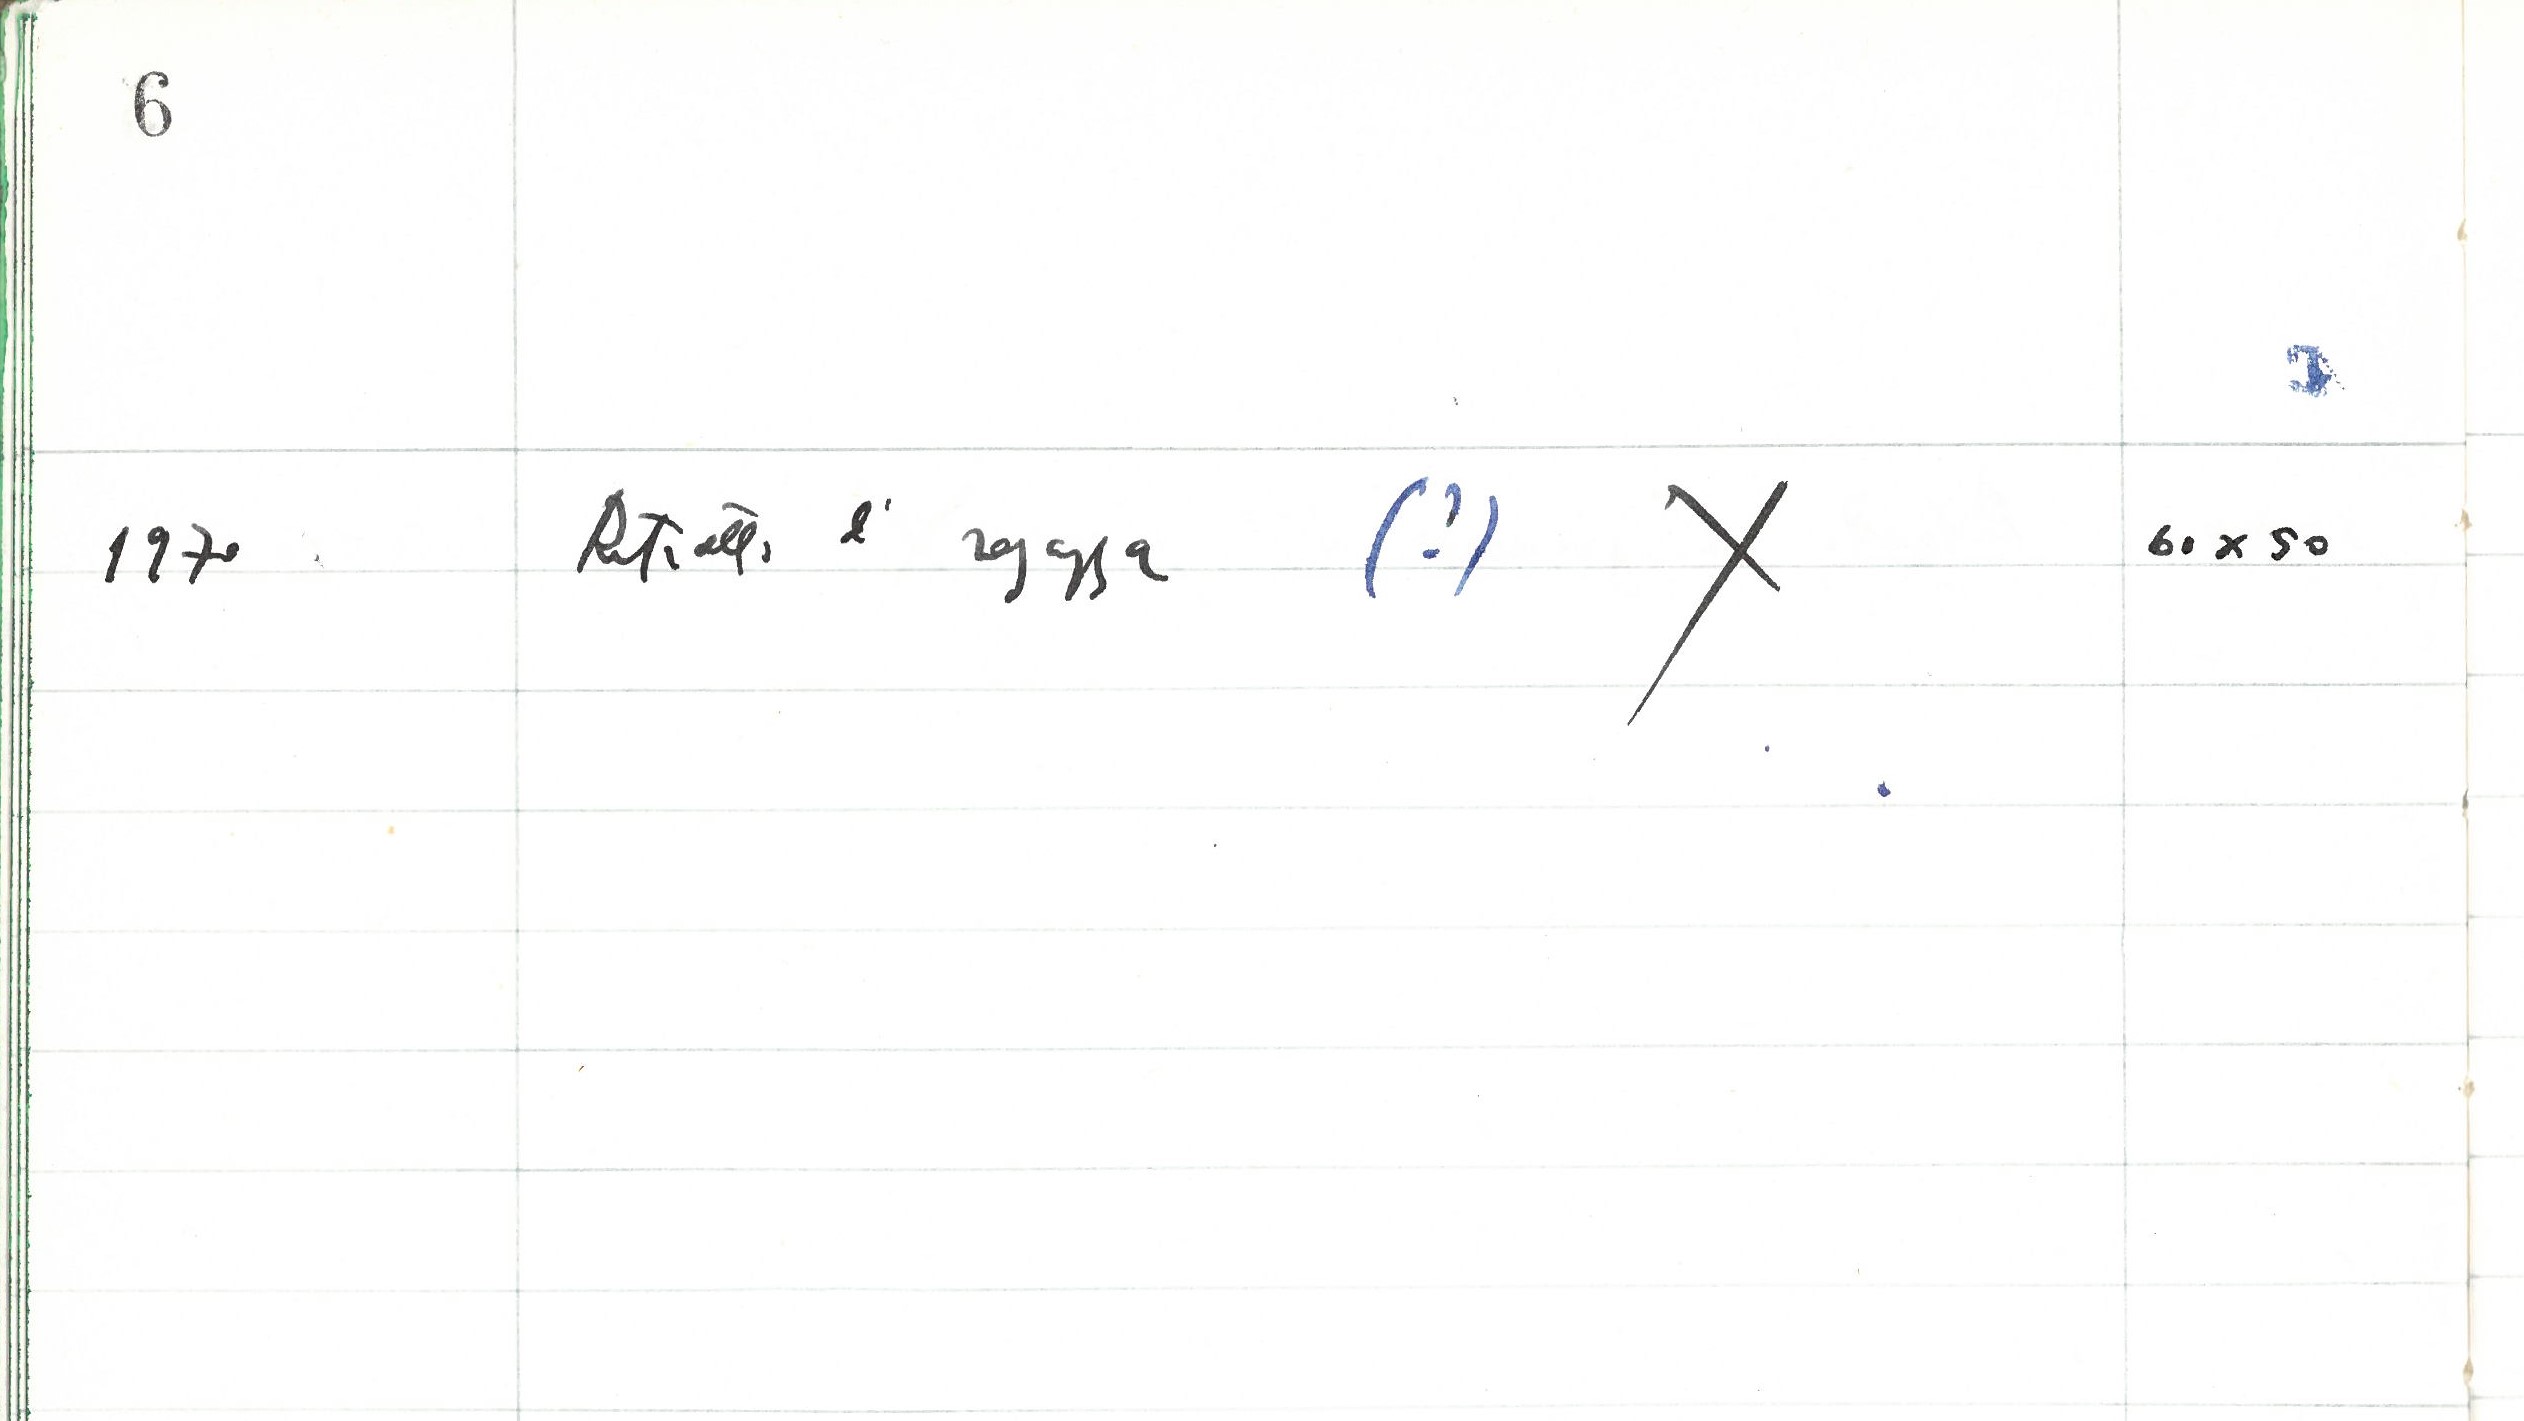 6
1970 Ritratto di ragazza (?) X 60 x 50